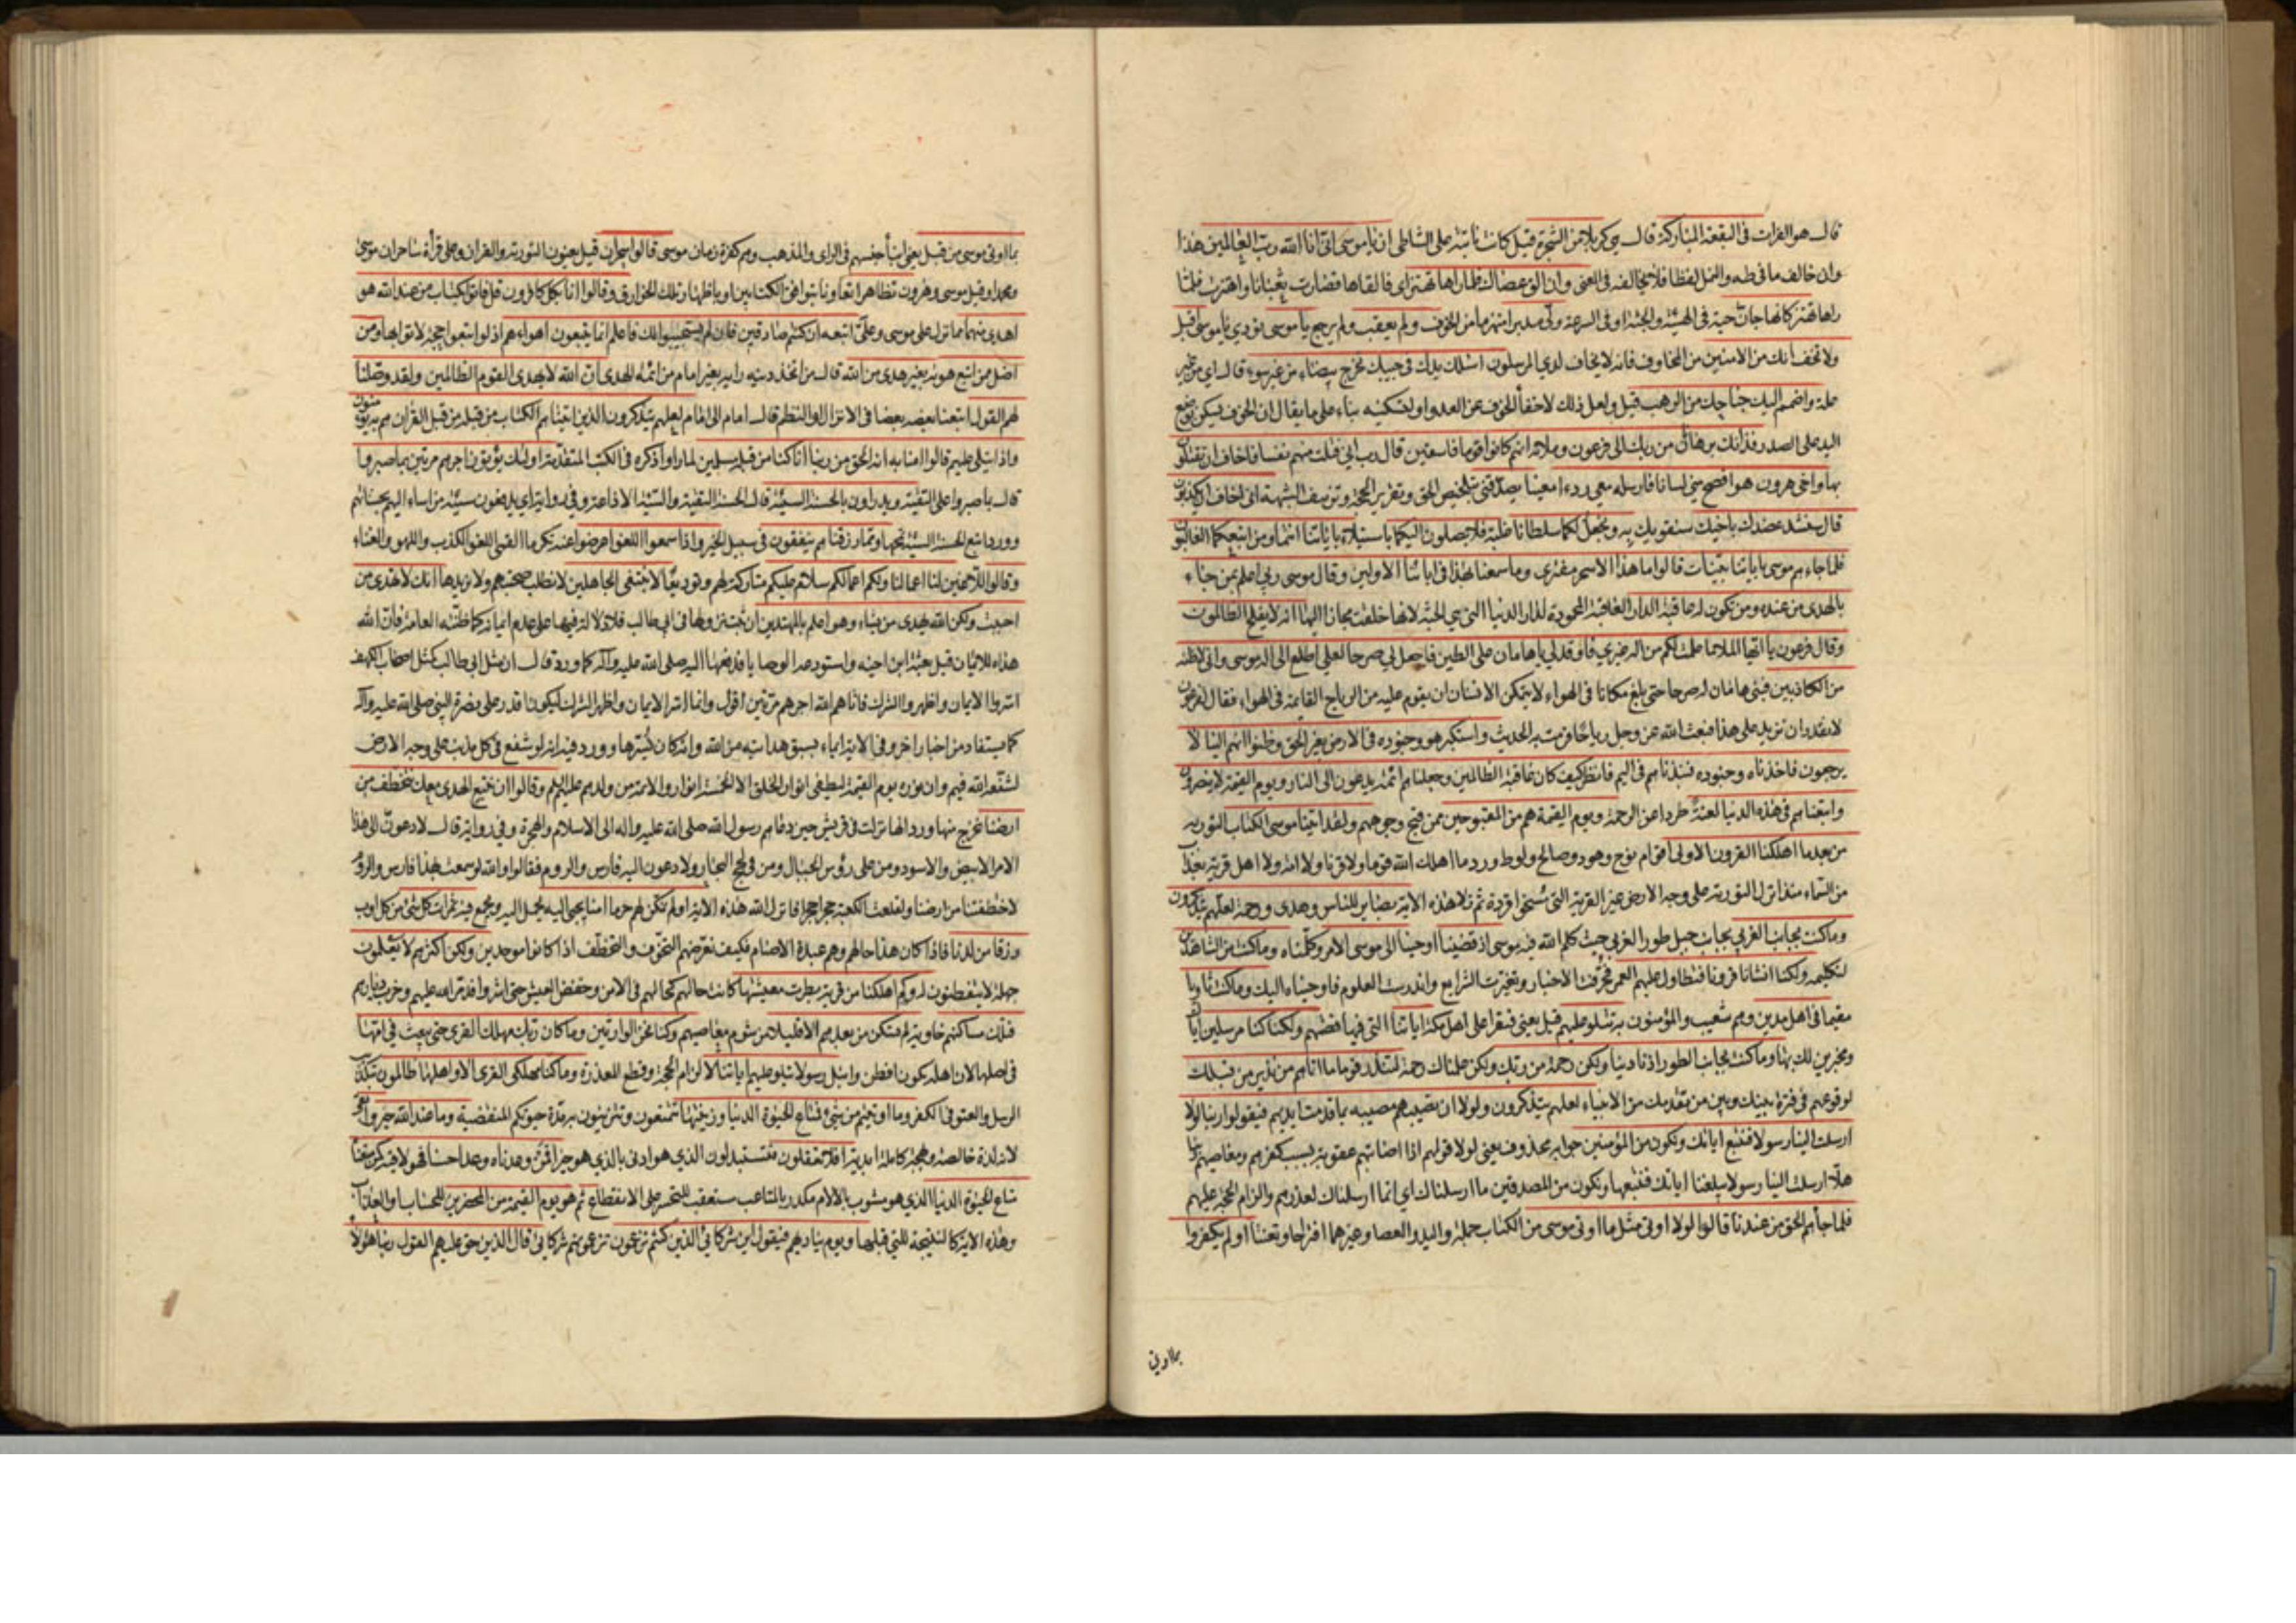 قال هو الفرات في البقعة المباركة قال هي كربلا من الشجرة قيل كانت نابتة على الشاطئ ان يا موسى اني انا الله رب العالمين هذا
وان خالف ما في طه والنمل لفظا فلا يخالفه في المعنى وان الق عصاك فلما راها تهتز اي فالقاها فصارت ثعبانا واهتزت فلما
راها تهتز كانها جان حية في الهيئة والجثة او في السرعة ولى مدبرا منهزما من الخوف ولم يعقب ولم يرجع يا موسى نودي يا موسى اقبل
ولا تخف انك من الامنين من المخاوف فانه لا يخاف لدي المرسلون اسلك يدك في جيبك تخرج بيضاء من غير سوء قال اي من غير
علة واضمم اليك جناحك من الرهب قيل ولعل ذلك لاخفاء الخوف عن العدو او لتسكينه بناء على ما يقال ان الخوف يسكن بوضع
اليد على الصدر فذانك برهانان من ربك الى فرعون وملائه انهم كانوا قوما فاسقين قال رب اني قتلت منهم نفسا فاخاف ان يقتلون
بها واخي هرون هو افصح مني لسانا فارسله معي ردءا معينا يصدقني بتلخيص الحق وتقرير الحجة وتزييف الشبهة اني اخاف ان يكذبون
قال سنشد عضدك باخيك سنقويك به ونجعل لكما سلطانا غلبة فلا يصلون اليكما باستيلاء باياتنا انتما ومن اتبعكما الغالبون
فلما جاءهم موسى باياتنا بينات قالوا ما هذا الا سحر مفترى وما سمعنا بهذا في ابائنا الاولين وقال موسى ربي اعلم بمن جاء
بالهدى من عنده ومن تكون له عاقبة الدار العاقبة المحمودة لدار الدنيا التي هي الجنة لانها خلقت مجازا اليها انه لا يفلح الظالمون
وقال فرعون يا ايها الملا ما علمت لكم من اله غيري فاوقد لي يا هامان على الطين فاجعل لي صرحا لعلي اطلع الى اله موسى واني لاظنه
من الكاذبين فبنى هامان له صرحا حتى بلغ مكانا في الهواء لا يتمكن الانسان ان يقوم عليه من الرياح القايمة في الهواء فقال لفرعون
لا نقدر ان نزيد على هذا فبعث الله عز وجل رياحا فرمت به الحديث واستكبر هو وجنوده في الارض بغير الحق وظنوا انهم الينا لا
يرجعون فاخذناه وجنوده فنبذناهم في اليم فانظر كيف كان عاقبة الظالمين وجعلناهم ائمة يدعون الى النار ويوم القيمة لا ينصرون
واتبعناهم في هذه الدنيا لعنة طردا عن الرحمة ويوم القيمة هم من المقبوحين ممن قبح وجوههم ولقد اتينا موسى الكتاب التورية
من بعد ما اهلكنا القرون الاولى اقوام نوح وهود وصالح ولوط ورد ما اهلك الله قوما ولا قرنا ولا امة ولا اهل قرية بعذاب
من السماء منذ انزل التورية على وجه الارض غير القرية التي مسخوا قردة ثم تلا هذه الاية بصاير للناس وهدى ورحمة لعلهم يتذكرون
وما كنت بجانب الغربي بجانب جبل طور الغربي حيث كلم الله فيه موسى اذ قضينا اوحينا الى موسى الامر وكلمناه وما كنت من الشاهدين
لتكليمه ولكنا انشانا قرونا فتطاول عليهم العمر فحرفت الاخبار وتغيرت الشرايع واندرست العلوم فاوحيناه اليك وما كنت ثاويا
مقيما في اهل مدين وهم شعيب والمؤمنون به تتلو عليهم قيل يعني فتقرا على اهل مكة اياتنا التي فيها قصتهم ولكنا كنا مرسلين اياك
ومخبرين لك بها وما كنت بجانب الطور اذ نادينا ولكن رحمة من ربك ولكن علمناك رحمة لتنذر قوما ما اتاهم من نذير من قبلك
لوقوعهم في فترة بينك وبين من تقدمك من الانبياء لعلهم يتذكرون ولولا ان تصيبهم مصيبة بما قدمت ايديهم فيقولوا ربنا لولا
ارسلت الينا رسولا فنتبع اياتك ونكون من المؤمنين جوابه محذوف يعني لولا قولهم اذا اصابتهم عقوبة بسبب كفرهم ومعاصيهم ربنا
هلا ارسلت الينا رسولا يبلغنا اياتك فنتبعها ونكون من المصدقين ما ارسلناك اي انما ارسلناك لعذرهم والزام الحجة عليهم
فلما جاءهم الحق من عندنا قالوا لولا اوتي مثل ما اوتي موسى من الكتاب جملة واليد والعصا وغيرهما اقتراحا وتعنتا اولم يكفروا
بما اوتي
بما اوتي موسى من قبل يعني ابناء جنسهم في الراي والمذهب وهم كفرة زمان موسى قالوا سحران قيل يعنون التورية والقران وعلى قراءة ساحران موسى
ومحمدا وقيل موسى وهرون تظاهرا تعاونا بتوافق الكتابين او باظهار تلك الخوارق وقالوا انا بكل كافرون قل فاتوا بكتاب من عند الله هو
اهدى منهما مما نزل على موسى وعلي اتبعه ان كنتم صادقين فان لم يستجيبوا لك فاعلم انما يتبعون اهواءهم اذ لو اتبعوا حجة لاتوا بها ومن
اضل ممن اتبع هويه بغير هدى من الله قال من اتخذ دينه رايه بغير امام من ائمة الهدى ان الله لا يهدي القوم الظالمين ولقد وصلنا
لهم القول اتبعنا بعضه بعضا في الانزال او النظم قال امام الى امام لعلهم يتذكرون الذين اتيناهم الكتاب من قبله من قبل القران هم به يؤمنون
واذا يتلى عليهم قالوا امنا به انه الحق من ربنا انا كنا من قبله مسلمين لما راوا ذكره في الكتب المتقدمة اولئك يؤتون اجرهم مرتين بما صبروا
قال بما صبروا على التقية ويدراون بالحسنة السيئة قال الحسنة التقية والسيئة الاذاعة وفي رواية اي يدفعون سيئة من اساء اليهم بحسناتهم
وورد اتبع الحسنة السيئة تمحها ومما رزقناهم ينفقون في سبيل الخير واذا سمعوا اللغو اعرضوا عنه تكرما القمي اللغو الكذب واللهو والغناء
وقالوا للاغين لنا اعمالنا ولكم اعمالكم سلام عليكم متاركة لهم وتوديعا لا نبتغي الجاهلين لا نطلب صحبتهم ولا نريدها انك لا تهدي من
احببت ولكن الله يهدي من يشاء وهو اعلم بالمهتدين ان ثبت نزولها في ابي طالب فلا دلالة فيها على عدم ايمانه كما ظنته العامة فان الله
هداه للايمان قبل بعثة ابن اخيه واستودعه الوصايا فدفعها اليه صلى الله عليه واله كما ورد قال ان مثل ابي طالب كمثل اصحاب الكهف
اسروا الايمان واظهروا الشرك فاتاهم الله اجرهم مرتين اقول وانما اسر الايمان واظهر الشرك ليكون اقدر على نصرة النبي صلى الله عليه واله
كما يستفاد من اخبار اخر وفي الاية ايماء بسبق هدايته من الله وانه كان يسترها وورد فيه انه لو شفع في كل مذنب على وجه الارض
لشفعه الله فيهم وان نوره يوم القيمة ليطفي انوار الخلق الا الخمسة انوار والائمة من ولدهم عليهم السلم وقالوا ان نتبع الهدى معك نتخطف من
ارضنا نخرج منها ورد انها نزلت في قريش حين دعاهم رسول الله صلى الله عليه واله الى الاسلام والهجرة وفي رواية قال لادعون الى هذا
الامر الابيض والاسود ومن على رؤس الجبال ومن في لجج البحار ولادعون اليه فارس والروم فقالوا والله لو سمعت بهذا فارس والروم
لاختطفتنا من ارضنا ولقلعت الكعبة حجرا حجرا فانزل الله هذه الاية اولم نمكن لهم حرما امنا يجبى اليه يحمل اليه ويجمع فيه ثمرات كل شيء من كل اوب
رزقا من لدنا فاذا كان هذا حالهم وهم عبدة الاصنام فكيف نعرضهم التخوف والتخطف اذا كانوا موحدين ولكن اكثرهم لا يعلمون
جهلة لا يتفطنون له وكم اهلكنا من قرية بطرت معيشتها كانت حالهم كحالهم في الامن وخفض العيش حتى اشروا فدمر الله عليهم وخرب ديارهم
فتلك مساكنهم خاوية لم تسكن من بعدهم الا قليلا من شوم معاصيهم وكنا نحن الوارثين وما كان ربك مهلك القرى حتى يبعث في امها
في اصلها لان اهله يكون افطن وانبل رسولا يتلو عليهم اياتنا لالزام الحجة وقطع المعذرة وما كنا مهلكي القرى الا واهلها ظالمون بتكذيب
الرسل والعتو في الكفر وما اوتيتم من شيء فمتاع الحيوة الدنيا وزينتها تتمتعون وتتزينون به مدة حيوتكم المنقضية وما عند الله خير وابقى
لانه لذة خالصة وبهجة كاملة ابدية افلا تعقلون فتستبدلون الذي هو ادنى بالذي هو خير افمن وعدناه وعدا حسنا فهو لاقيه كمن متعناه
متاع الحيوة الدنيا الذي هو مشوب بالالام مكدر بالمتاعب مستعقب للتحسر على الانقطاع ثم هو يوم القيمة من المحضرين للحساب او العذاب
وهذه الاية كالنتيجة للتي قبلها ويوم يناديهم فيقول اين شركائي الذين كنتم تزعمون تزعمونهم شركائي قال الذين حق عليهم القول ربنا هؤلاء